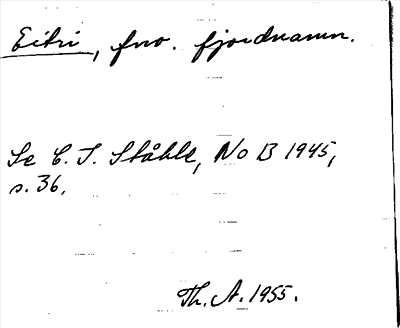 Eitri, fno. fjordnamn.
Se C. I. Ståhle, NoB 1945,
s. 36.
Th. A. 1955.